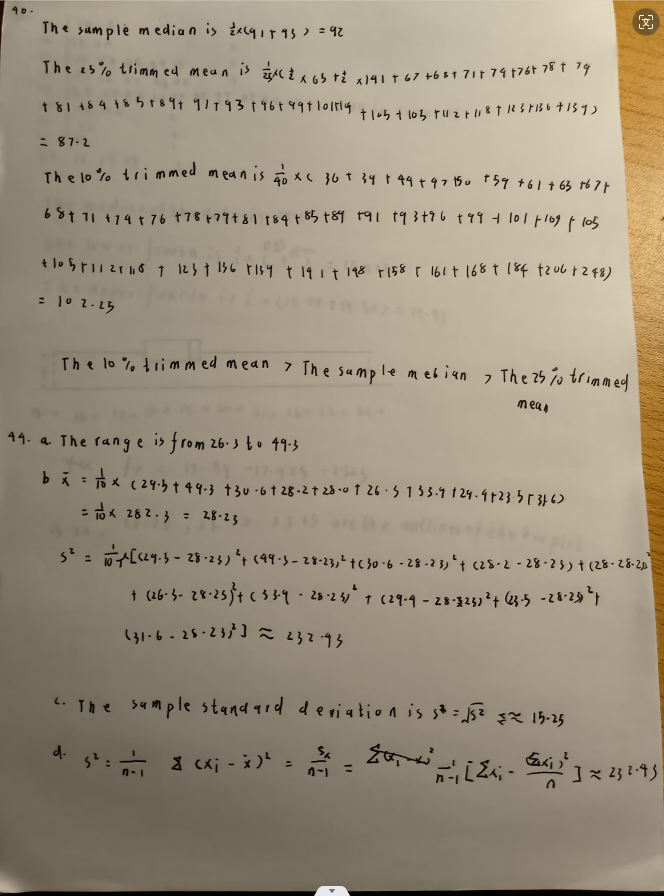 40.
The sample median is ½×(91+93) = 92
The 25% trimmed mean is 1/25×(½ × 65 + ½ × 141 + 67 + 68 + 71 + 74 + 76 + 78 + 79
+ 81 + 84 + 85 + 89 + 91 + 93 + 96 + 99 + 101 + 104 + 105 + 105 + 112 + 118 + 123 + 136 + 139)
= 87.2
The 10% trimmed mean is 1/40 × ( 36 + 39 + 44 + 47 + 50 + 59 + 61 + 65 + 67 +
68 + 71 + 74 + 76 + 78 + 79 + 81 + 84 + 85 + 89 + 91 + 93 + 96 + 99 + 101 + 104 + 105
+ 105 + 112 + 118 + 123 + 136 + 139 + 141 + 148 + 158 + 161 + 168 + 184 + 206 + 248)
= 102.25
The 10% trimmed mean > The sample median > The 25% trimmed
mean
44. a. The range is from 26.3 to 49.3
b x̄ = 1/10 × (29.5 + 49.3 + 30.6 + 28.2 + 28.0 + 26.3 + 33.9 + 29.4 + 23.5 + 31.6)
= 1/10 × 282.3 = 28.23
s² = 1/10-1 [(29.5 - 28.23)² + (49.3 - 28.23)² + (30.6 - 28.23)² + (28.2 - 28.23) + (28 - 28.23)²
+ (26.3 - 28.23)² + (33.9 - 28.23)² + (29.4 - 28.23)² + (23.5 - 28.23)² +
(31.6 - 28.23)²] ≈ 232.43
c. The sample standard deviation is s = √s² ≈ 15.25
d. s² = 1/n-1 Σ (xi - x̄)² = Sx/n-1 = 1/n-1 [Σxi - (Σxi)²/n] ≈ 232.43